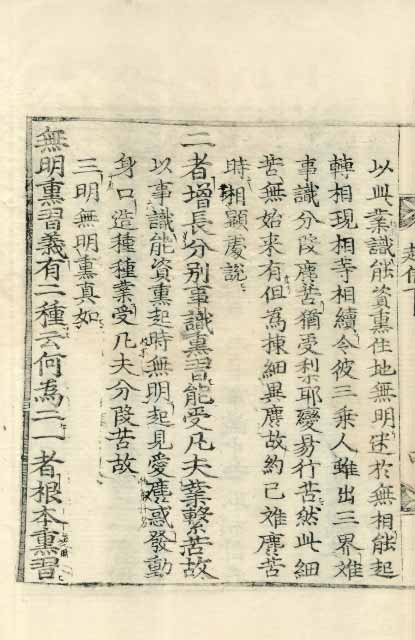 以此業識能資熏住地無明迷於無相能起
轉相現相等相續令彼三乘人雖出三界離
事識分段麁苦猶受梨耶變易行苦然此細
苦無始來有但為揀細異麁故約已離麁苦
時相顯處說
二者增長分別事識熏習能受凡夫業繫苦故
以事識能資熏起時無明起見愛麁惑發動
身口造種種業受凡夫分段苦故
三明無明熏真如
無明熏習義有二種云何為二一者根本熏習